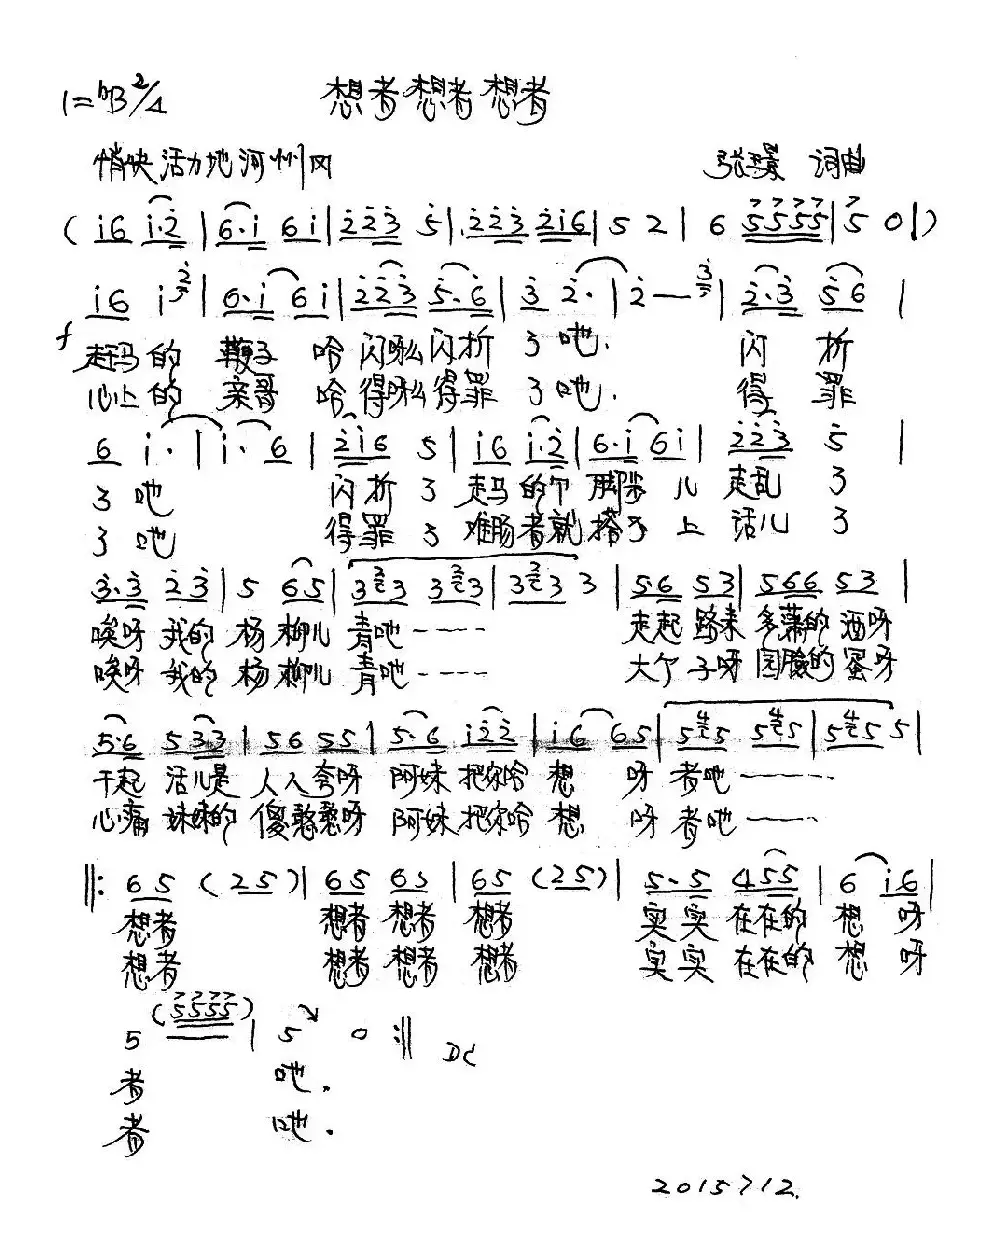 1=♭B 2/4 想者想者想者
愉快活力地 河州风 张璟 词曲
( i6 i·2 | 6·i 6i | 223 5 | 223 2i6 | 5 2 | 6 5555 | 5 0 | )
i6 i | 6·i 6i | 223 5·6 | 3 2· | 2 — | 2·3 56 |
f 赶马的 鞭子 哈 闪吆么闪折 了吔. 闪 折
心上的 亲哥 哈 得吆么得罪 了吔. 得 罪
6 i· | i· 6 | 2i6 5 | i6 i·2 | 6·i 6i | 223 5 |
了吔 闪折了 走马的个 脚尖儿 走乱了
了吔 得罪了 难肠者就 搭子上 话儿了
3·3 23 | 5 65 | 3 3 3 3 | 3 3 3 | 5·6 53 | 566 53 |
唉呀 我的 杨柳儿 青吔 ---- 走起 路来 多藩的 洒呀
唉呀 我的 杨柳儿 青吔 ---- 大个子呀 园脸的 蛋呀
5·6 533 | 56 55 | 5·6 i22 | i6 65 | 5 5 5 5 | 5 5 5 |
干起 活儿是 人人夸呀 阿妹 把你哈 想 呀 者吔 ----
心痛 妹妹的 傻憨憨呀 阿妹 把你哈 想 呀 者吔 ----
‖: 65 (25) | 65 65 | 65 (25) | 5·5 455 | 6 i6 |
想者 想者 想者 想者 实实 在在的 想 呀
想者 想者 想者 想者 实实 在在的 想 呀
5 (5555) | 5 0 :‖ DC
者 吔.
者 吔.
2015712.